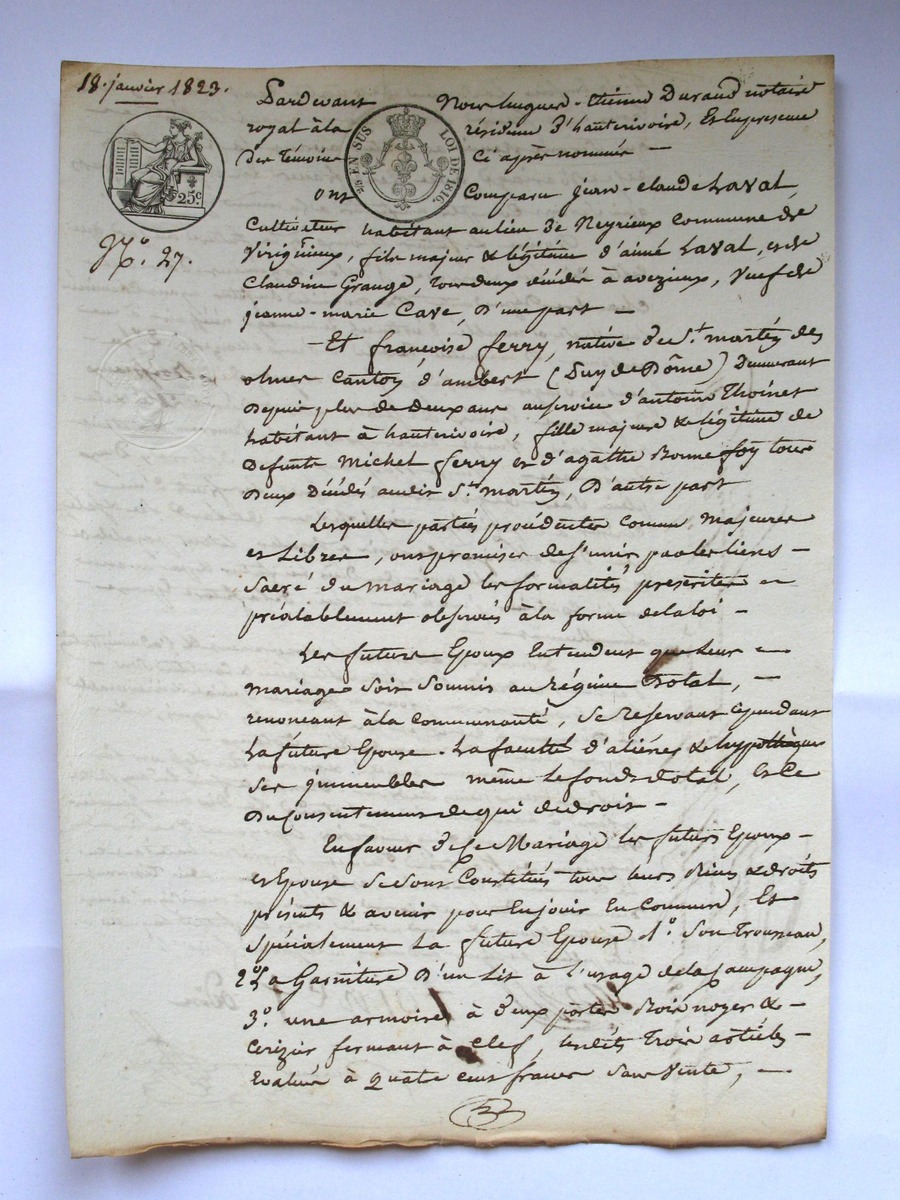 18. janvier 1823.
Pardevant Nous hugues-Etienne Durand notaire
royal à la résidence d'hauterivoire, Et En presence
Des Témoins ci après nommés —
25 EN SUS LOI DE 1816.
25c
ont Comparu jean-claude Laval,
Cultivateur habitant au lieu de Neyrieux Commune de
N.o 27.
Virigneux, fils majeur & légitime d'aimé Laval, et de
Claudine Grange, tous deux décédés à aveizieux, veuf de
jeanne-marie Cave, D'une part —
— Et françoise ferry, native de St. martin des
olmes Canton d'ambert (Puy de Dôme) Demeurant
Depuis plus de deux ans au service d'antoine Thoinet
habitant à hauterivoire, fille majeure & légitime de
Defunts Michel ferry et d'agathe Bonnefoy tous
Deux Décédés audit St. martin, D'autre part
Lesquelles parties procédantes comme majeures
et Libres, ont promises de s'unir par les liens —
Sacré du mariage les formalités prescrites —
préalablement observés à la forme de la loi —
Les futurs Epoux Entendent que leur —
mariage soit Soumis au Régime Dotal, —
renonçant à la Communauté, Se Reservant cependant
La future Epouse La faculté d'aliéner & hypothèquer
Ses immeubles même le fonds dotal, et ce
Du Consentement de qui de droit —
En faveur de Ce Mariage les futurs Epoux —
et Epouse Se sont Constitués tous leurs Biens & droits
présents & avenir pour En jouir En Commun, Et
Spécialement La future Epouse 1.o Son Trousseau,
2.o La Garniture D'un Lit à l'usage de la Campagne,
3.o une armoire à deux portes Bois noyer & —
Cerizier fermant à Clef, lesdits Trois articles
Evalués à Quatre cens francs Sans Vente, —